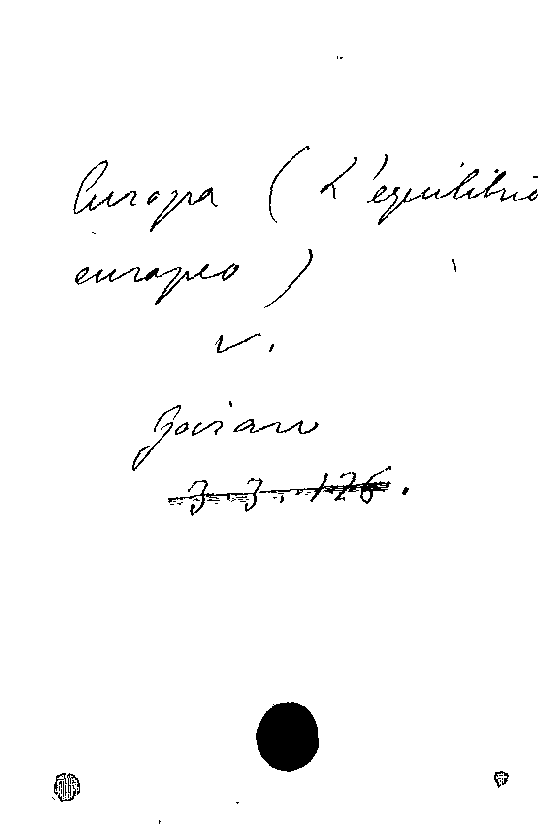 Europa (L'equilibrio
europeo)
v.
3.3.126.